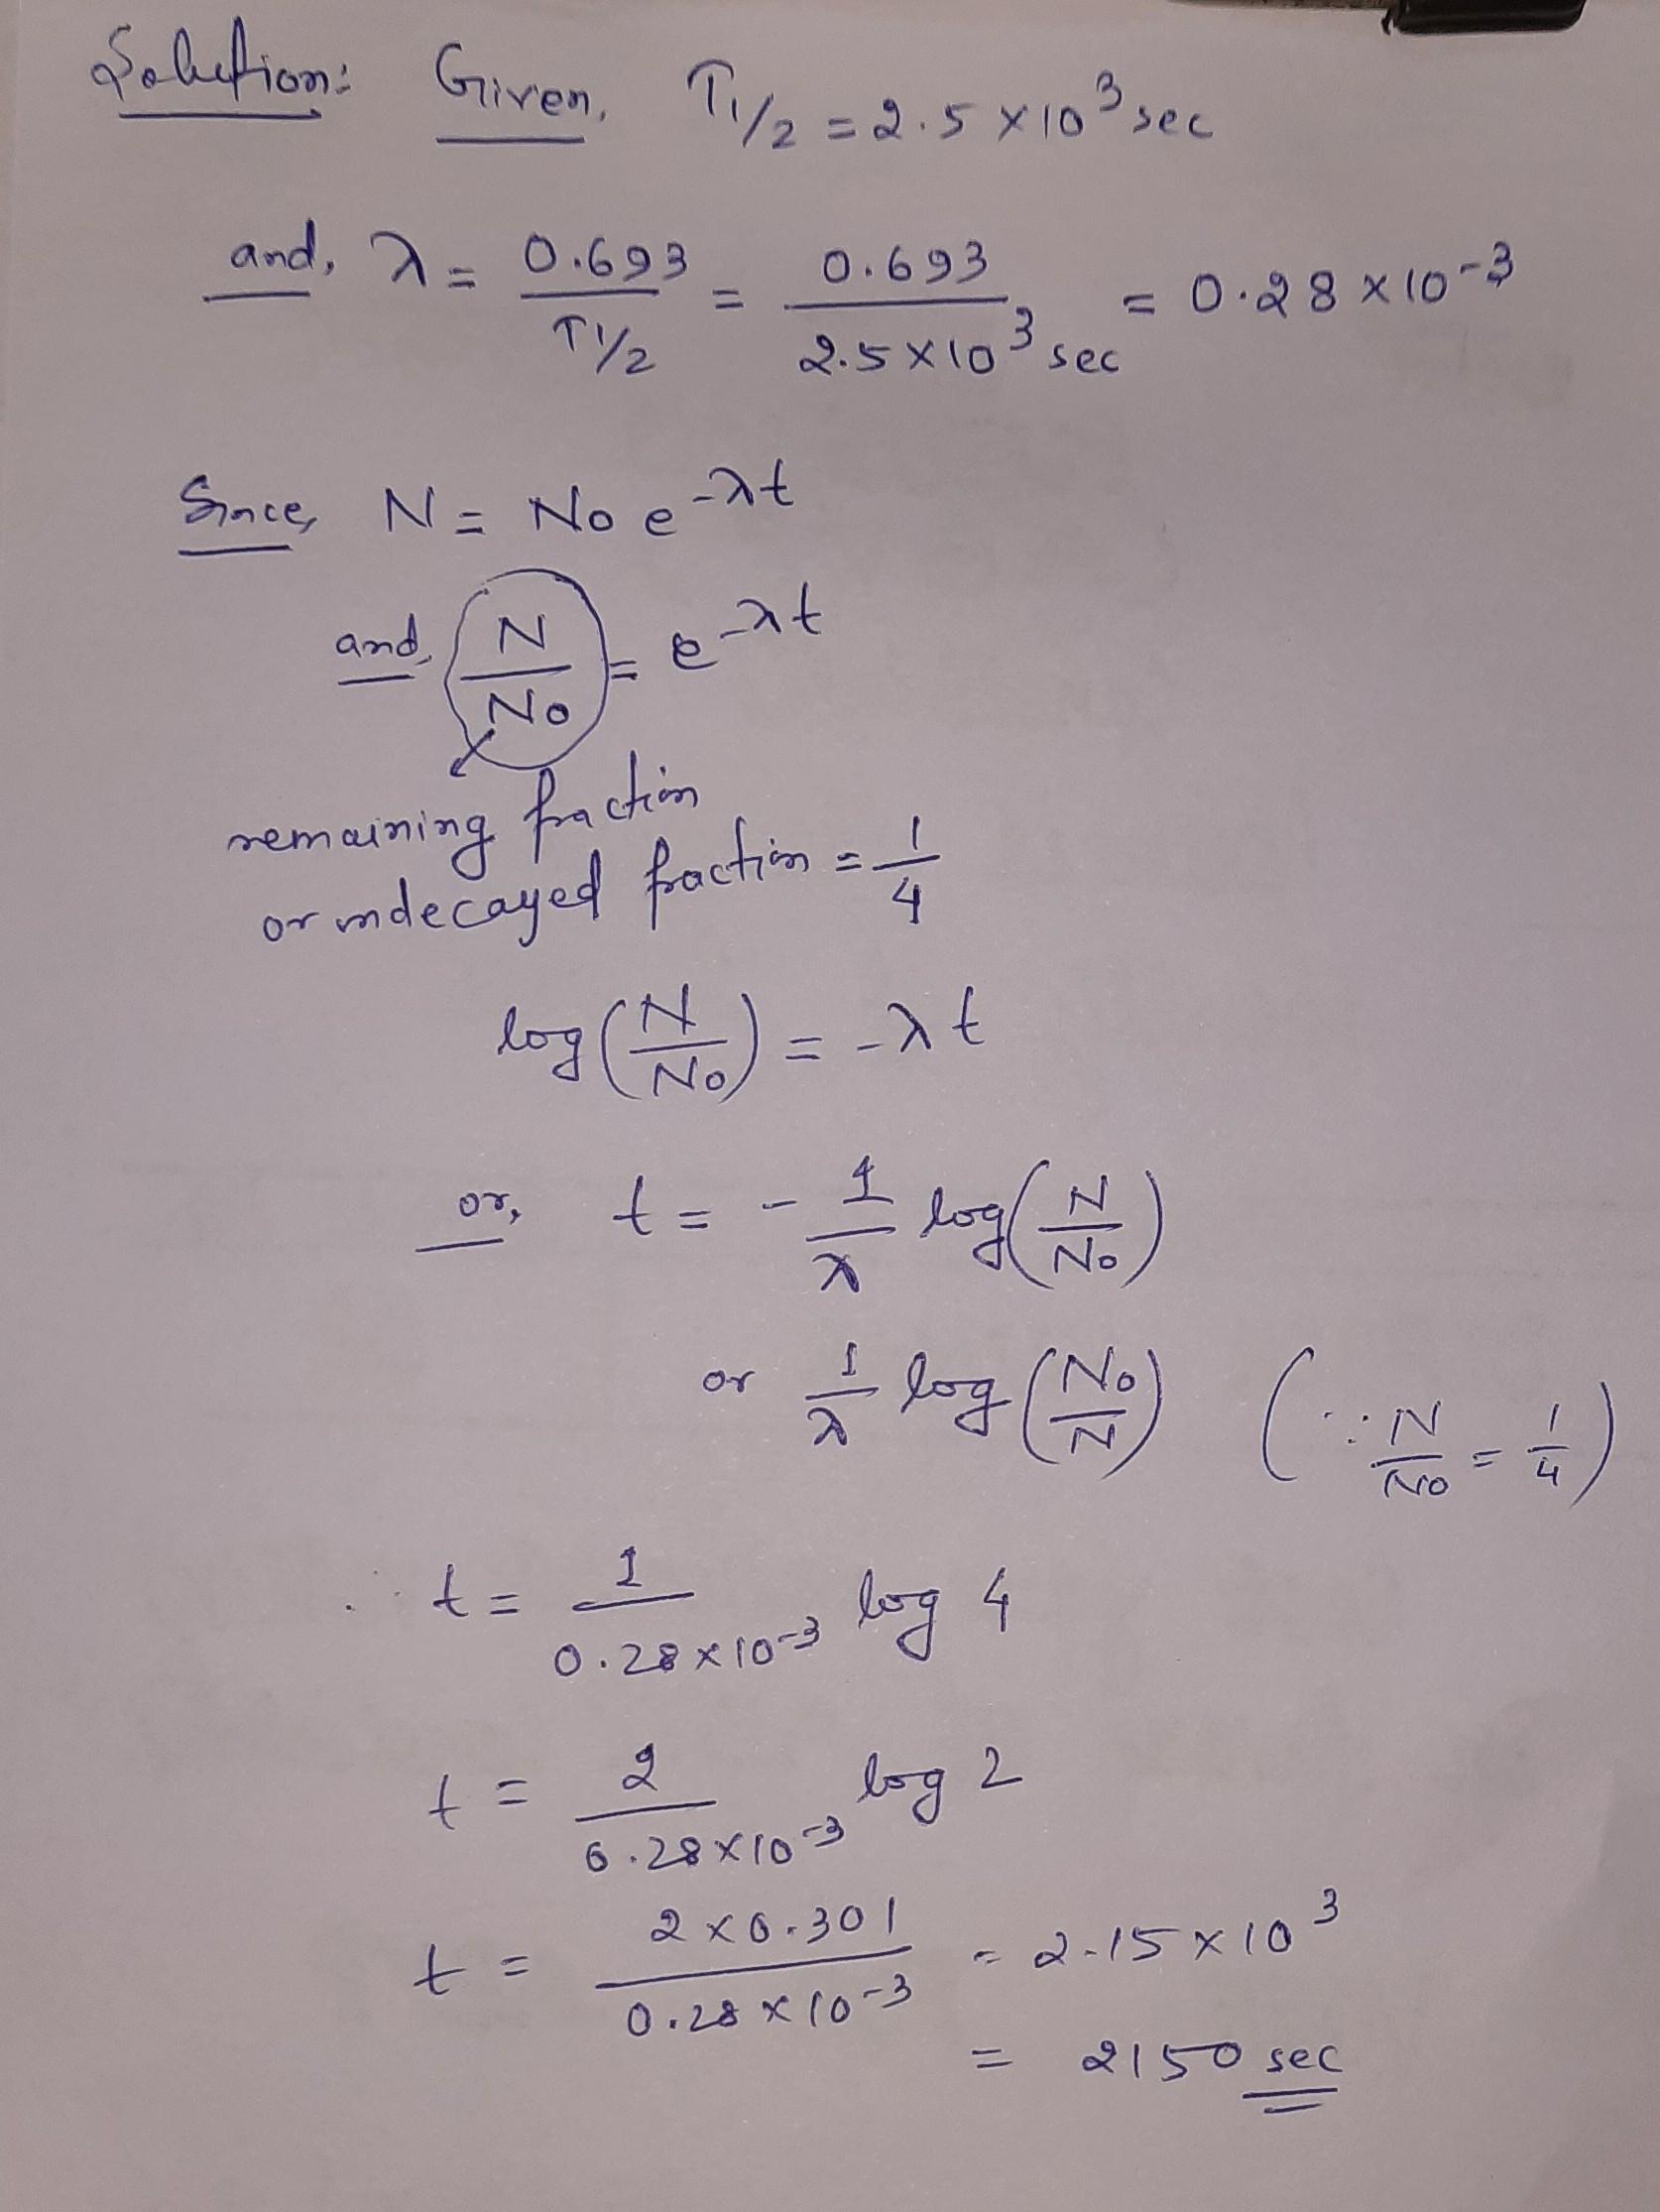 Solution: Given, T1/2 = 2.5 × 10³ sec
and, λ = 0.693/T1/2 = 0.693/2.5×10³ sec = 0.28 × 10⁻³
Since, N = No e^-λt
and, N/No = e^-λt
remaining fraction
or undecayed fraction = 1/4
log(N/No) = -λt
or, t = - 1/λ log(N/No)
or 1/λ log(No/N) (∵ N/No = 1/4)
∴ t = 1/0.28×10⁻³ log 4
t = 2/0.28×10⁻³ log 2
t = 2×0.301/0.28×10⁻³ = 2.15×10³
= 2150 sec